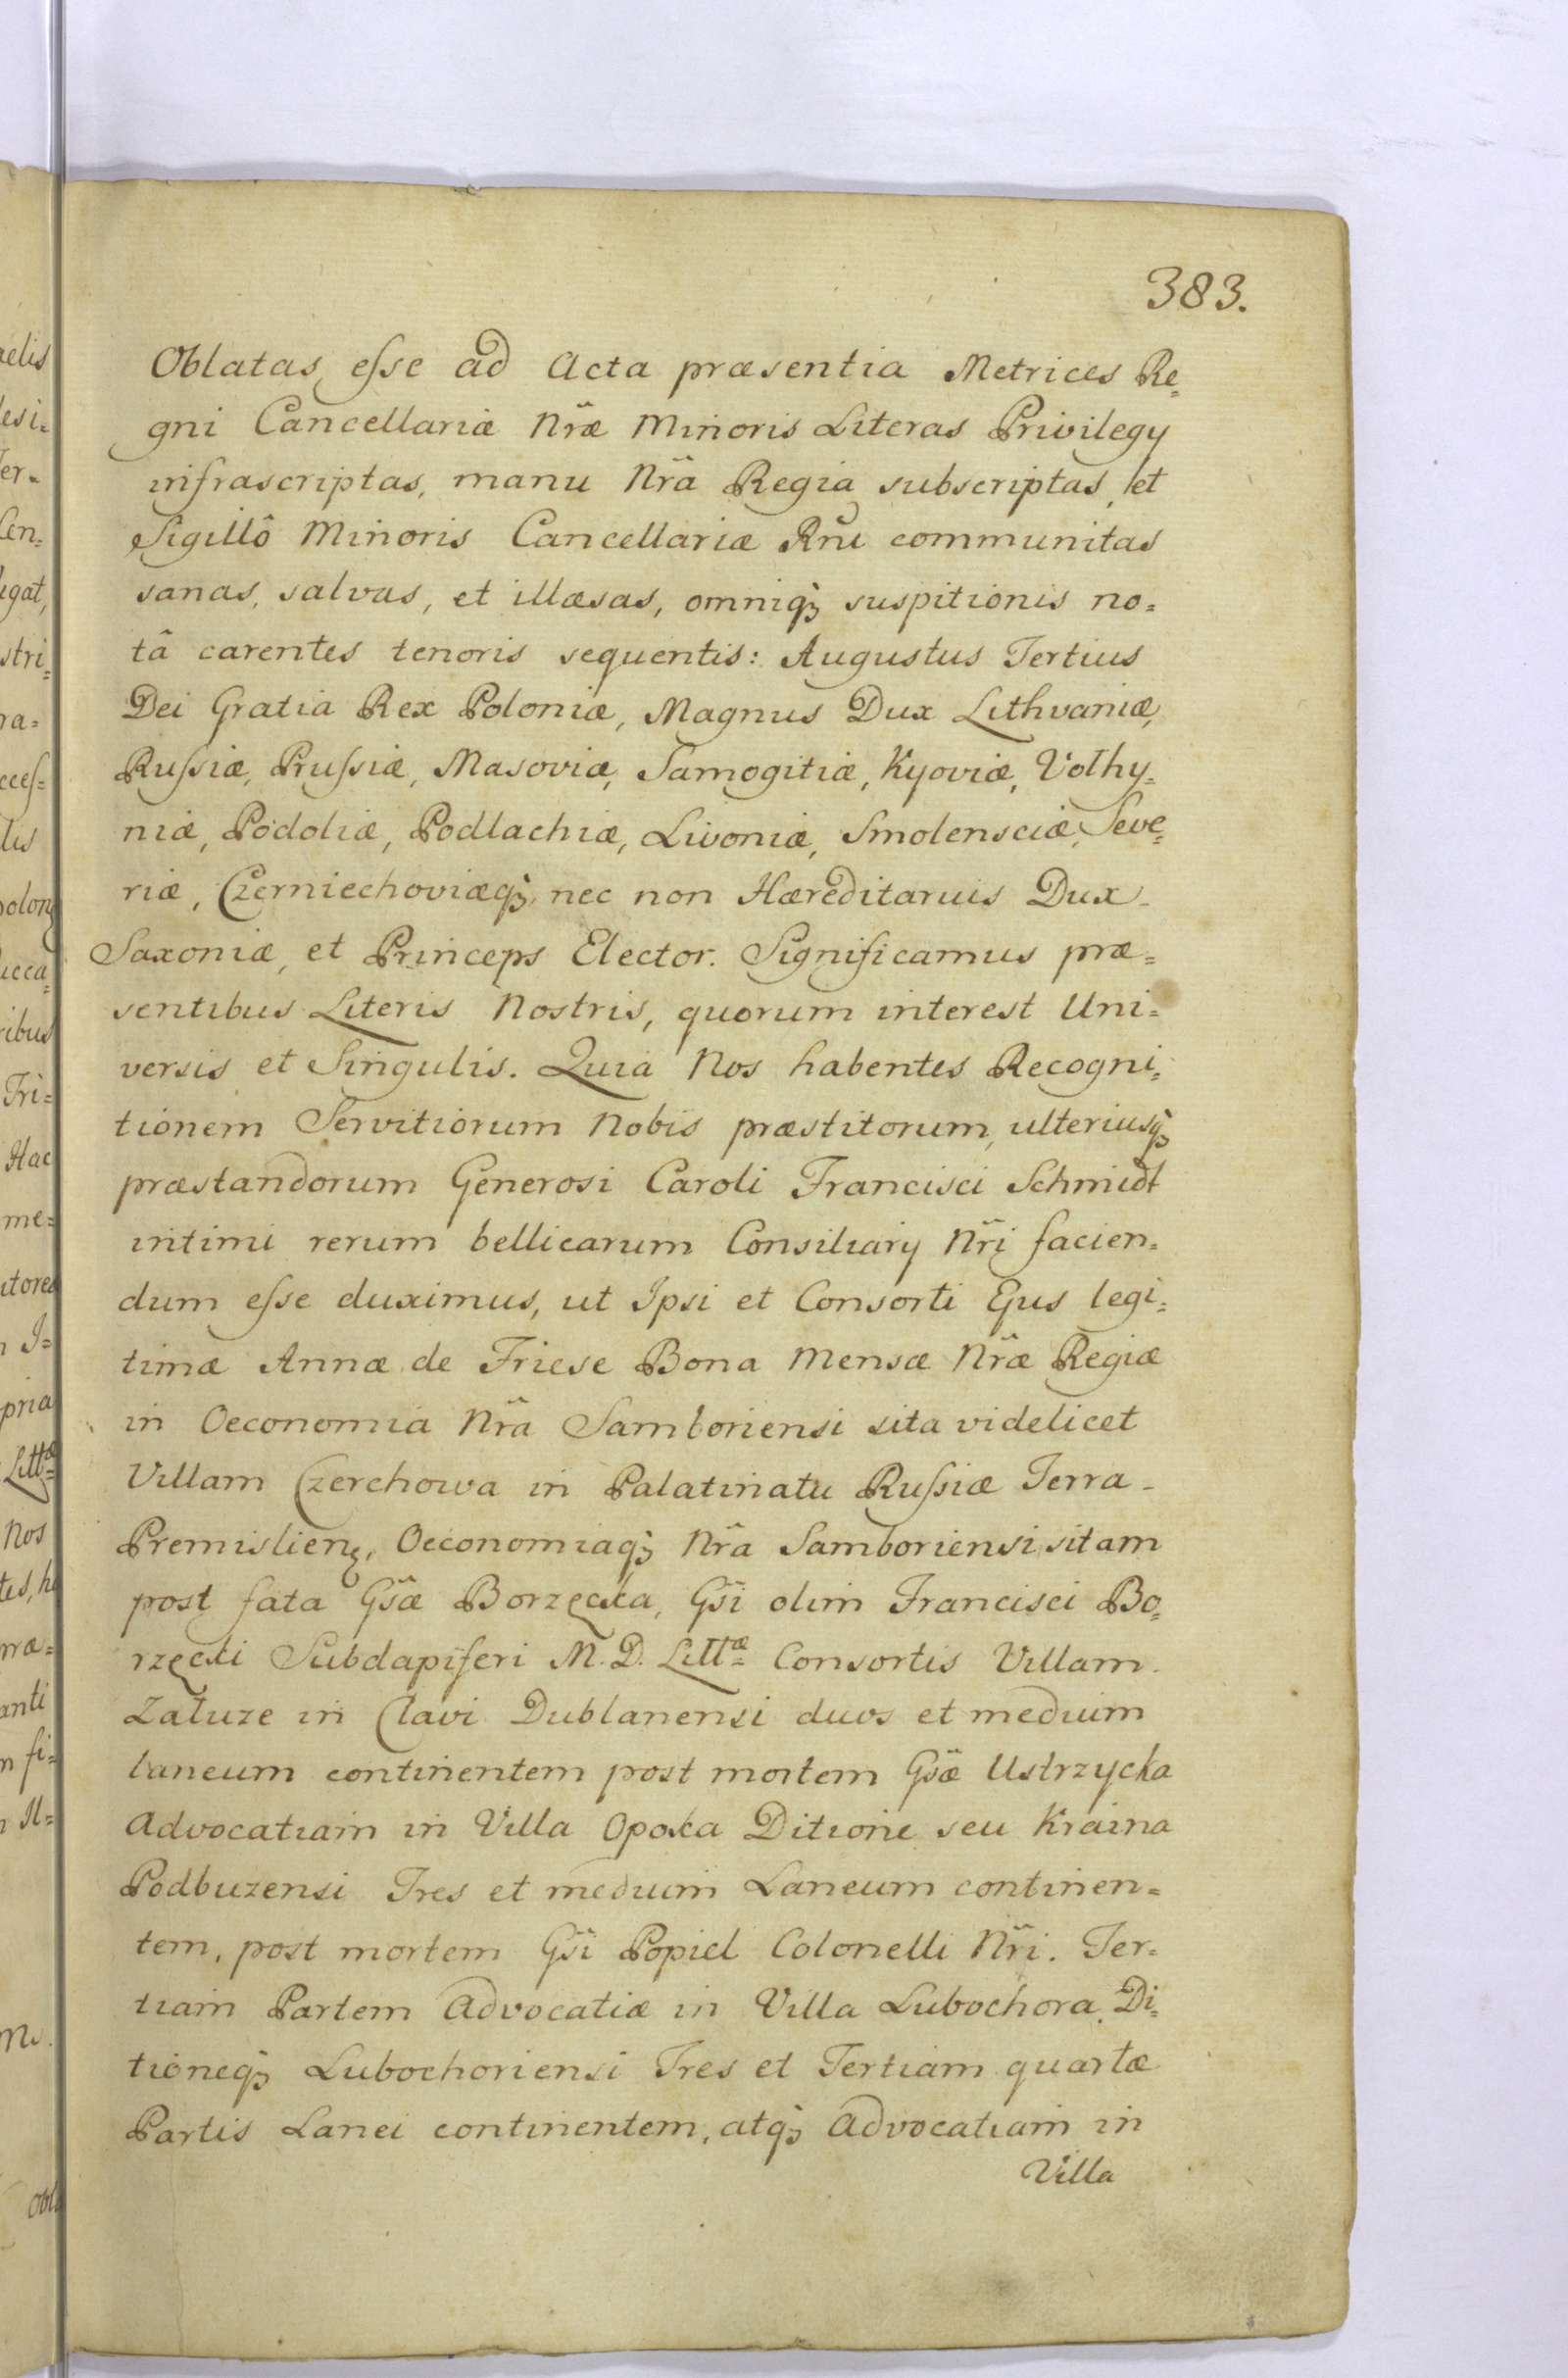 383.
Oblatas esse ad Acta præsentia Metrices Re=
gni Cancellariæ Nr̃æ Minoris Literas Privilegy
infrascriptas, manu Nr̃a Regia subscriptas, et
Sigillô Minoris Cancellariæ Rñi communitas
sanas, salvas, et illæsas, omniq̃ʒ suspitionis no=
tâ carentes tenoris sequentis: Augustus Tertius
Dei Gratia Rex Poloniæ, Magnus Dux Lithvaniæ,
Russiæ, Prussiæ, Masoviæ, Samogitiæ, Kyoviæ, Volhy=
niæ, Podoliæ, Podlachiæ, Livoniæ, Smolensciæ, Seve=
riæ, Czerniechoviæq̃ʒ, nec non Hæreditarius Dux
Saxoniæ, et Princeps Elector. Significamus præ=
sentibus Literis Nostris, quorum interest Uni=
versis et Singulis. Quia Nos habentes Recogni=
tionem Servitiorum Nobis præstitorum, ulteriusq̃ʒ
præstandorum Generosi Caroli Francisci Schmidt
intimi rerum bellicarum Consiliary Nr̃i facien=
dum esse duximus, ut Ipsi et Consorti Ejus legi=
timæ Annæ de Friese Bona Mensæ Nr̃æ Regiæ
in Oeconomia Nr̃a Samboriensi sita videlicet
Villam Czerchowa in Palatinatu Russiæ Terra
Premislienʒ, Oeconomiaq̃ʒ Nr̃a Samboriensi sitam
post fata Gs̃æ Borzęcka, Gs̃i olim Francisci Bo=
rzęcki Subdapiferi M. D. Littæ Consortis Villam
Zatuze in Clavi Dublanensi duos et medium
laneum continentem post mortem Gs̃æ Ustrzycka
Advocatiam in Villa Opaka Ditione seu Kraina
Podbuzensi Tres et medium Laneum continen=
tem, post mortem Gs̃i Popiel Colonelli Nr̃i. Ter=
tiam Partem Advocatiæ in Villa Lubochora, Di=
tioneq̃ʒ Lubochoriensi Tres et Tertiam quartæ
Partis Lanei continentem, atq̃ʒ Advocatiam in
Villa